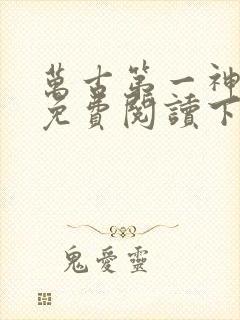 萬古第一神
免費閱讀下
鬼愛靈